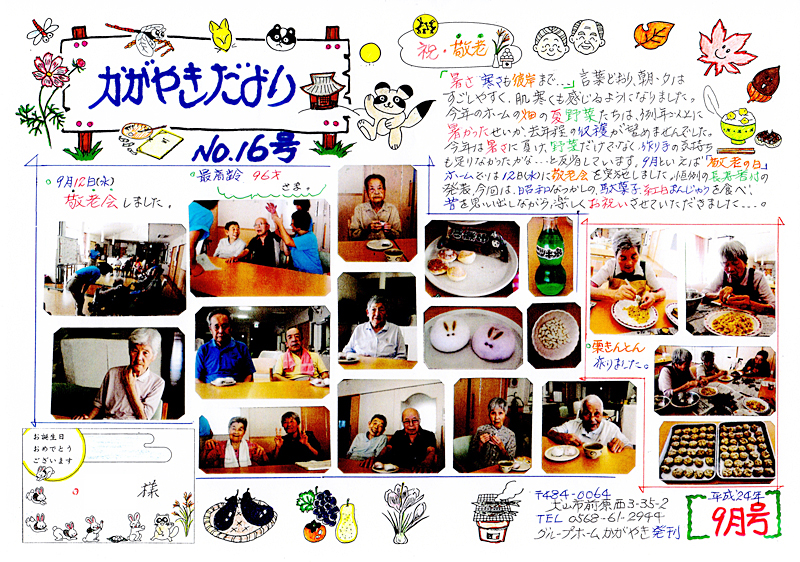 かがやきだより
No.16号
祝・敬老
「暑さ寒さも彼岸まで…」言葉どおり、朝・夕は
すごしやすく、肌寒くも感じるようになりました。
今年のホームの畑の夏野菜たちは、例年以上に
暑かったせいか、去年程の収穫が望めませんでした。
今年は暑さに負け、野菜だけでなく、作り手の気持ち
も足りなかったかな…と反省しています。9月といえば「敬老の日」
ホームでは12日(水)に敬老会を実施しました。恒例の長寿番付の
発表、今回は、昭和なつかしの、駄菓子、紅白まんじゅうを食べ、
昔を思い出しながら、楽しくお祝いさせていただきました…。
9月12日(水)
敬老会しました。
最高齢 96才
さま。
栗きんとん
作りました。
お誕生日
おめでとう
ございます
様
〒484-0064
犬山市前原西3-35-2
TEL 0568-61-2944
グループホームかがやき発刊
平成24年
9月号